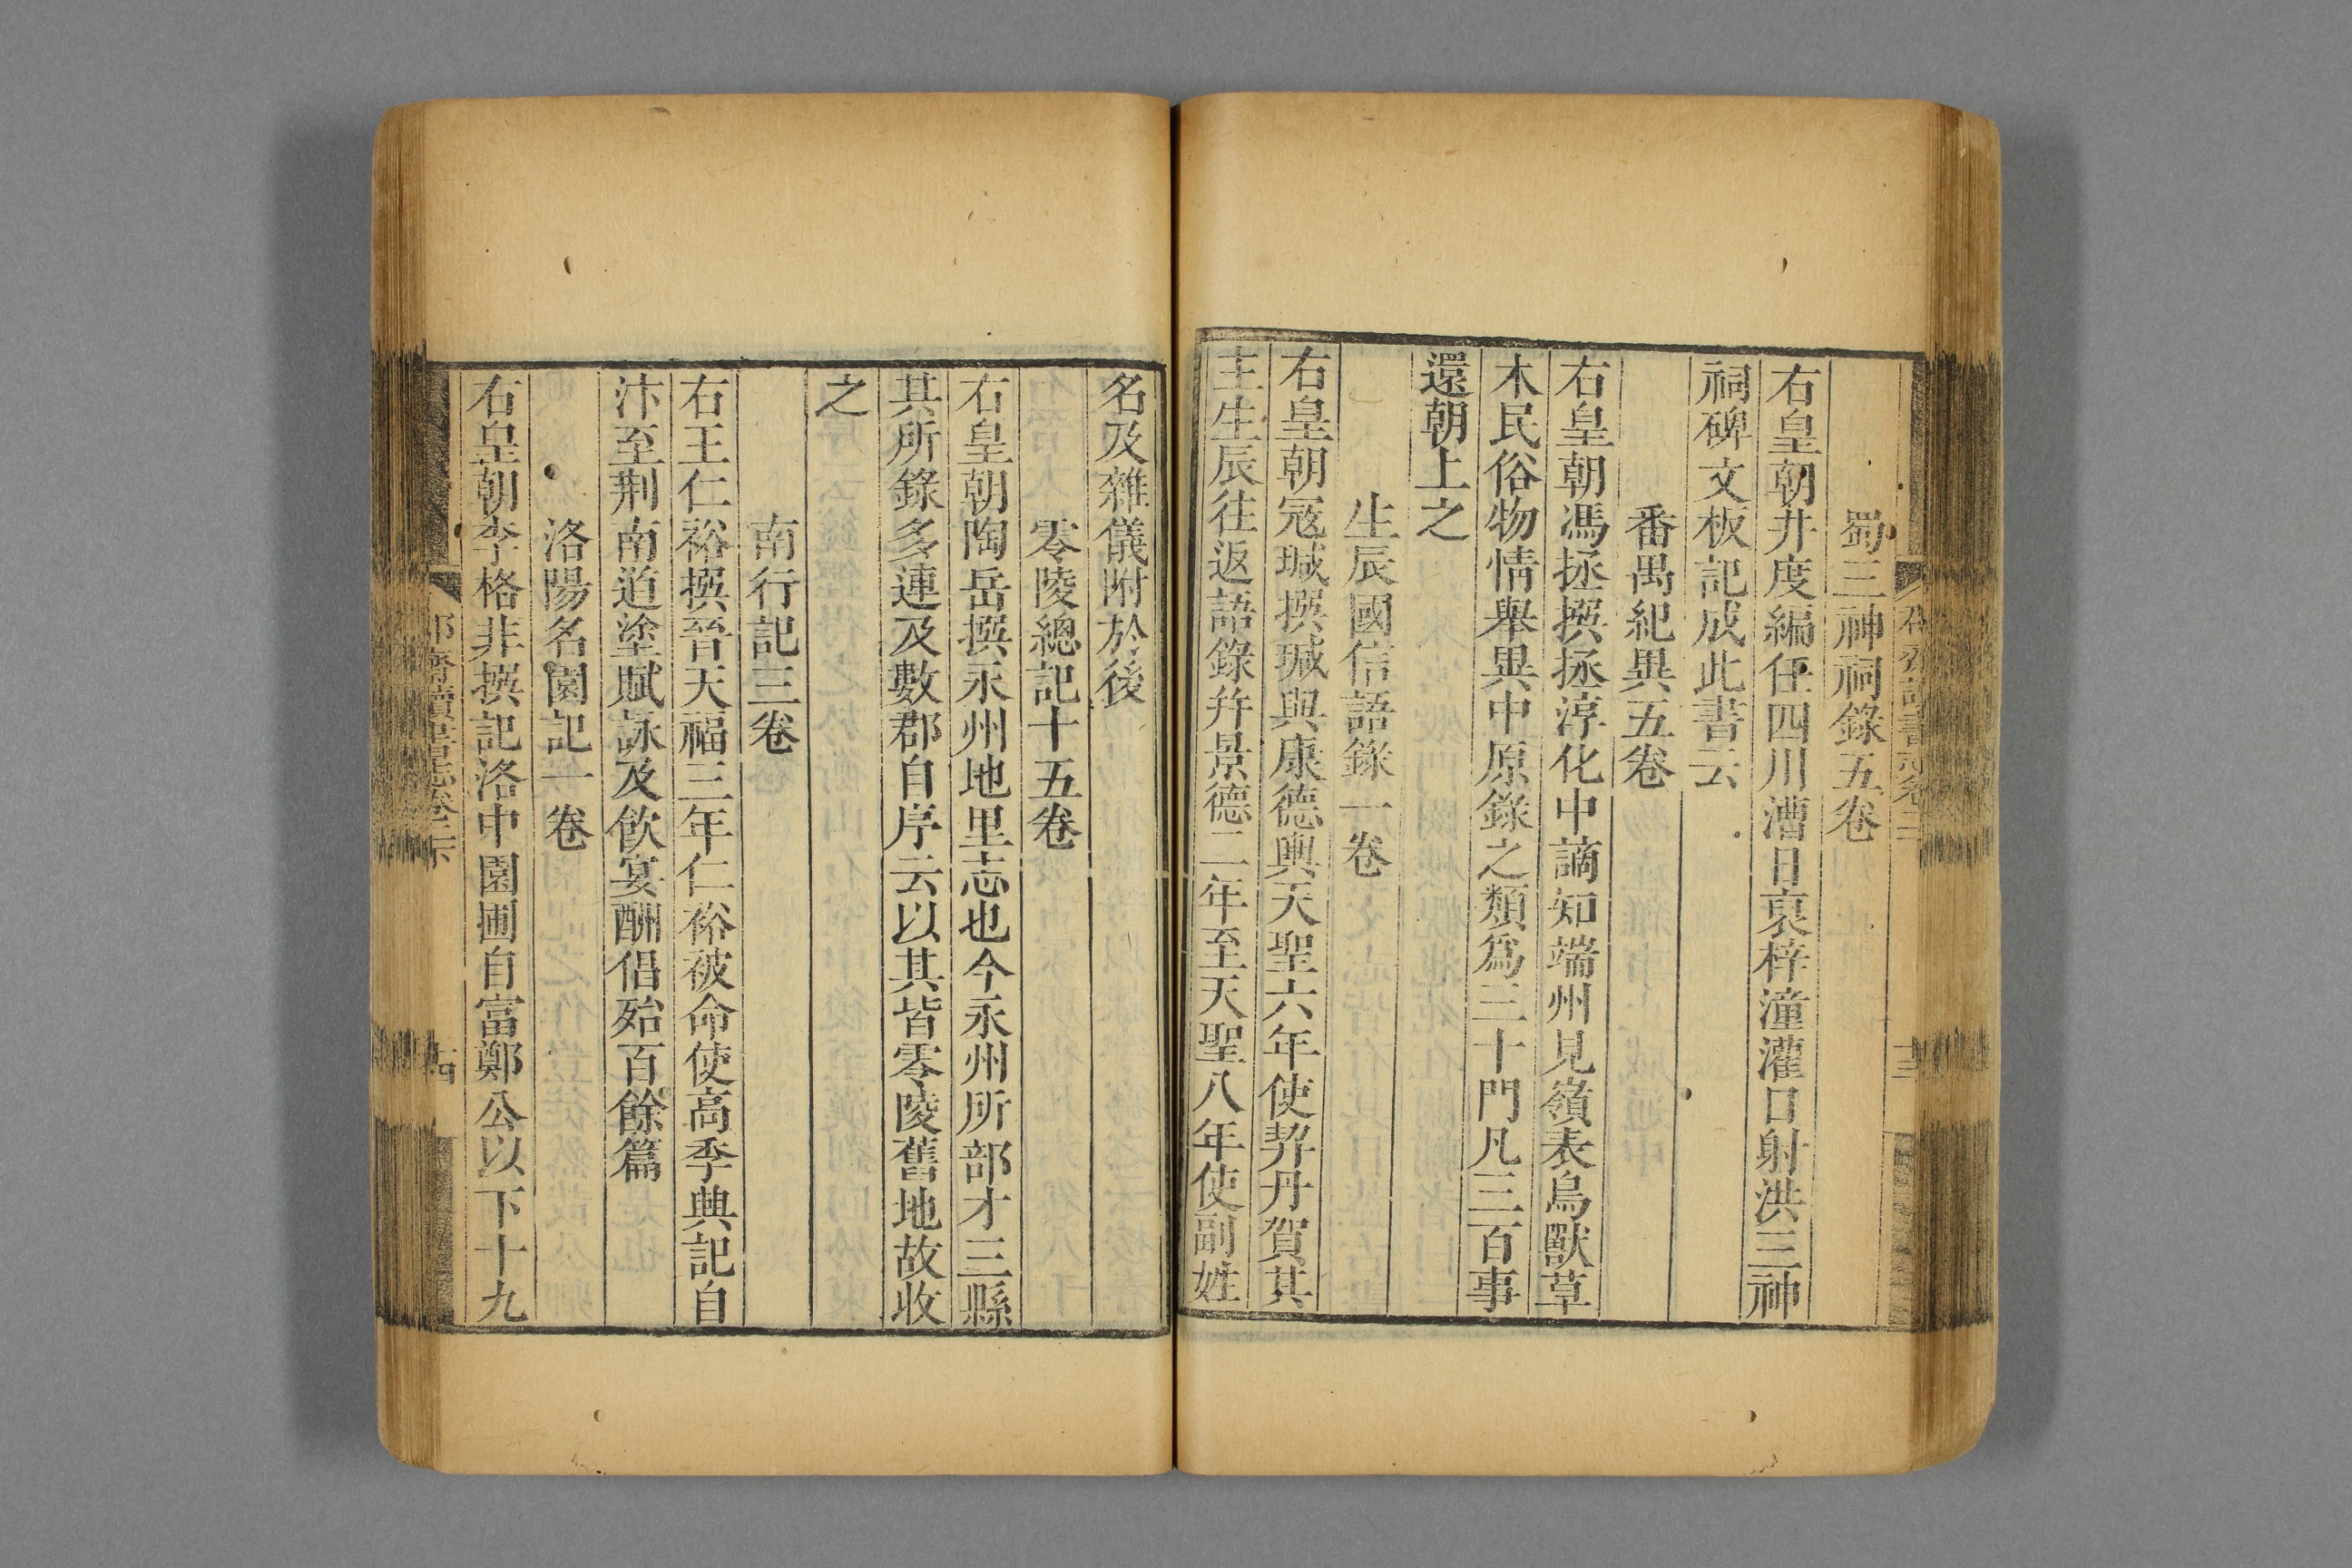 蜀三神祠錄五卷
右皇朝井度編任四川漕日裒梓潼灌口射洪三神
祠碑文板記成此書云
番禺紀異五卷
右皇朝馮拯撰拯淳化中謫知端州見嶺表鳥獸草
木民俗物情舉異中原錄之類爲三十門凡三百事
還朝上之
生辰國信語錄一卷
右皇朝寇瑊撰瑊與康德輿天聖六年使契丹賀其
主生辰往返語錄并景德二年至天聖八年使副姓
名及雜儀附於後
零陵總記十五卷
右皇朝陶岳撰永州地里志也今永州所部才三縣
其所錄多連及數郡自序云以其皆零陵舊地故收
之
南行記三卷
右王仁裕撰晉天福三年仁裕被命使高季興記自
汴至荆南道塗賦詠及飲宴酬倡殆百餘篇
洛陽名園記一卷
右皇朝李格非撰記洛中園圃自富鄭公以下十九
郡齋讀書志卷二下
十四